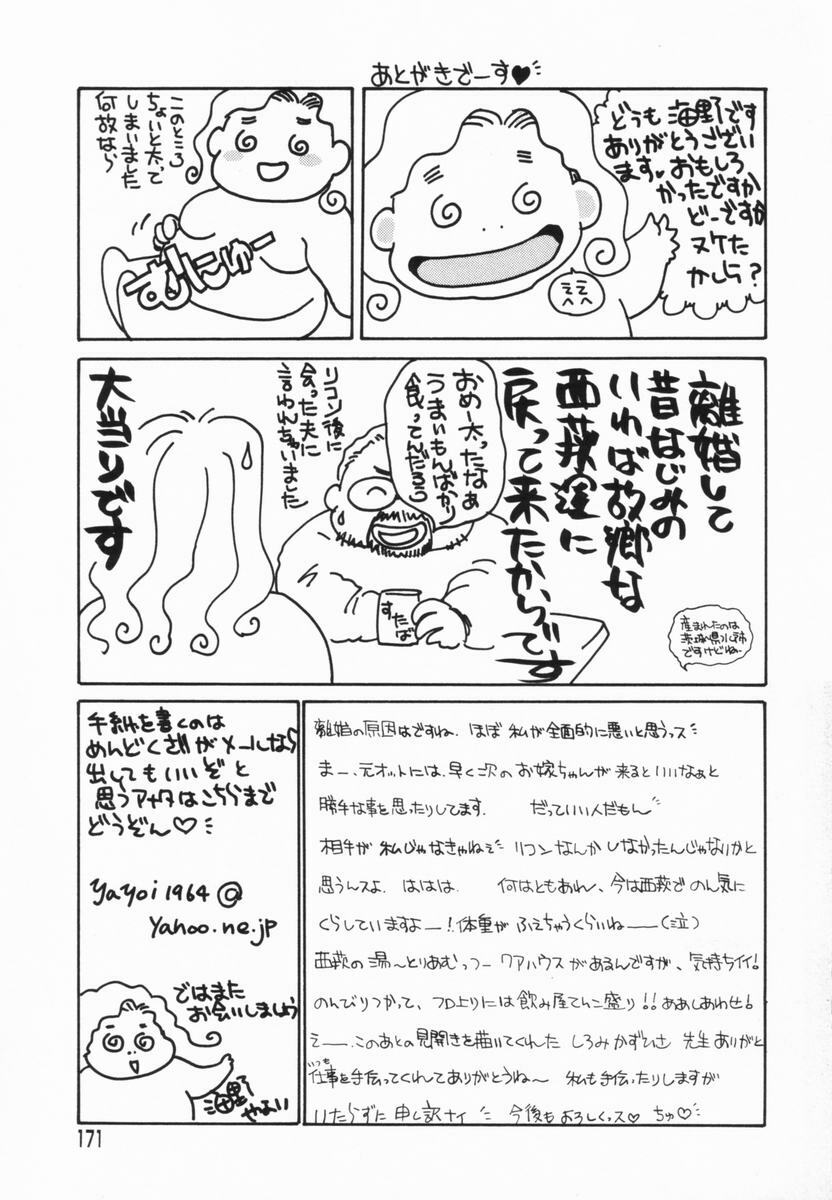 あとがきでーす♥
どうも海野です
ありがとうござい
ます♥おもしろ
かったですか
どーですか
ヌケた
かしら?
ええ
このところ
ちょいと太って
しまいました
何故なら
むにゅー
離婚して
昔なじみの
いわば故郷な
西荻窪に
戻って来たからです
産まれたのは
茨城県水戸市
ですけどね。
おめー太ったなぁ
うまいもんばかり
食ってんだろう
すたば
リコン後に
会った夫に
言われちゃいました
大当りです
離婚の原因はですね、ほぼ私が全面的に悪いと思うっス
まー、元オットには、早く次のお嫁ちゃんが来るといいなぁと
勝手な事を思ったりしてます。 だっていい人だもん
相手が私じゃなきゃねぇ リコンなんかしなかったんじゃないかと
思うんスよ、ははは. 何はともあれ、今は西荻でのん気に
くらしていますよー!体重がふえちゃうくらいねー(泣)
西荻の湯〜とりあむっつークアハウスがあるんですが、気持ちイイ!
のんびりつかって、フロ上りには飲み屋てんこ盛り!!ああしあわせ!
えー、このあとの見開きを描いてくれた しろみかずひさ 先生ありがと
いつも
仕事を手伝ってくれてありがとうね〜 私も手伝ったりしますが
いたらずに申し訳ナイ 今後もよろしくっス♡ ちゅ♡
手紙を書くのは
めんどくさいがメールなら
出してもいいぞと
思うアナタはこちらまで
どうぞん♡
yayoi1964@
yahoo.ne.jp
ではまた
お会いしましょう
海野
やよい
171